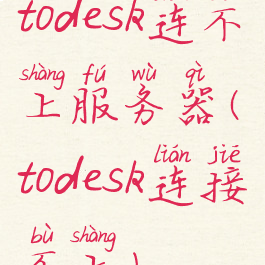 todesk连不
shàng fú wù qì
上服务器(
lián jiē
todesk连接
bù shàng
不上)